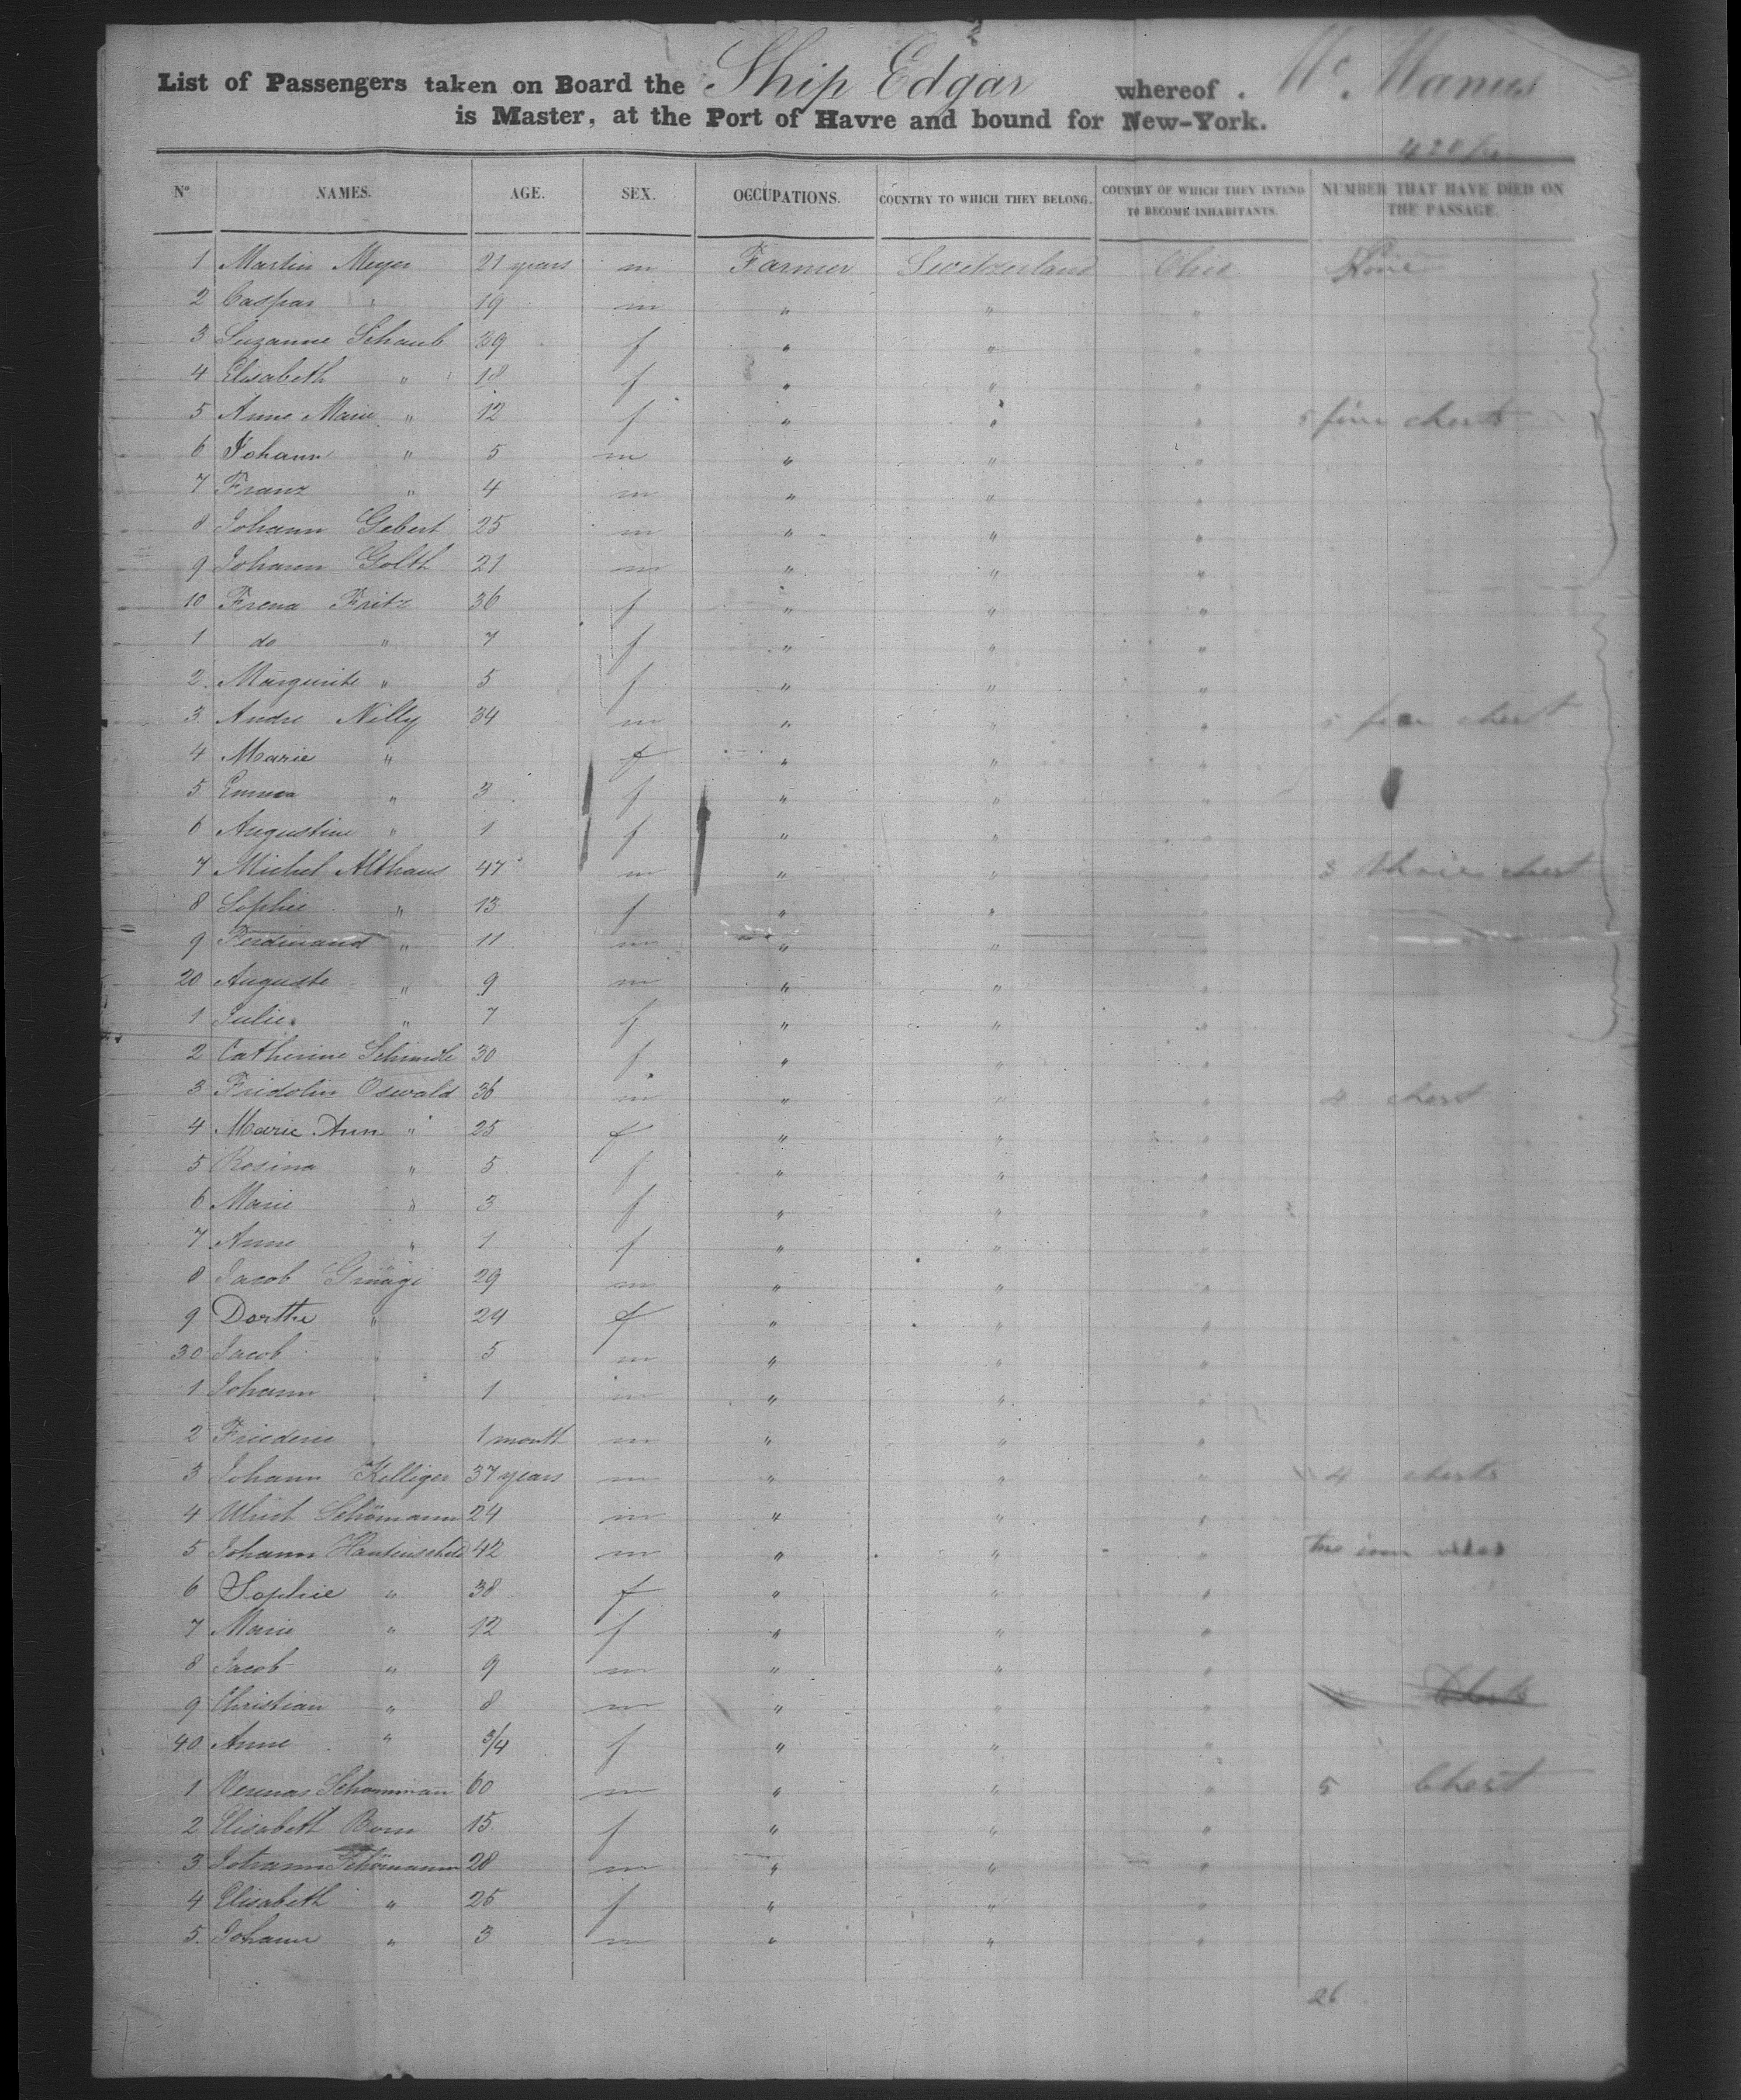 2
List of Passengers taken on Board the Ship Edgar whereof Mc Manus
is Master, at the Port of Havre and bound for New-York.
Nº NAMES. AGE. SEX. OCCUPATIONS. COUNTRY TO WHICH THEY BELONG. COUNTRY OF WHICH THEY INTEND TO BECOME INHABITANTS. NUMBER THAT HAVE DIED ON THE PASSAGE.
1 Martin Meyer 21 years m Farmer Switzerland Ohio None
2 Caspar " 19 m " " "
3 Suzanne Schaub 39 f " " "
4 Elisabeth " 18 f " " "
5 Anne Marie " 12 f " " " 5 five chests
6 Johann " 5 m " " "
7 Franz " 4 m " " "
8 Johann Gebert 25 m " " "
9 Johann Golth 21 m " " "
10 Frena Fritz 36 f " " "
1 do " 7 f " " "
2 Marguerite " 5 f " " "
3 Andre Nilly 34 m " " " chest
4 Marie " f " " "
5 Emma " 3 f " " "
6 Augustine " 1 f " " "
7 Michel Althaus 47 m " " " 3 three chest
8 Sophie " 13 f " " "
9 Ferdinand " 11 m " " "
20 Auguste " 9 m " " "
1 Julie " 7 f " " "
2 Catherine Schindle 30 f " " "
3 Fridolin Oswald 36 m " " " chest
4 Marie Ann " 25 f " " "
5 Rosina " 5 f " " "
6 Marie " 3 f " " "
7 Anne " 1 f " " "
8 Jacob 29 m " " "
9 Dorthe " 24 f " " "
30 Jacob 5 m " " "
1 Johann 1 m " " "
2 Friederic 1 month m " " "
3 Johann Kelliger 37 years m " " " 4 chests
4 Ulrich Schömann 24 m " " "
5 Johann Hautenschild 42 m " " "
6 Sophie " 38 f " " "
7 Marie " 12 f " " "
8 Jacob " 9 m " " "
9 Christian " 8 m " " "
40 Anne " 3/4 f " " "
1 Schommann 60 m " " " 5 Chest
2 Elisabeth Born 15 f " " "
3 Johann Schömann 28 m " " "
4 Elisabeth " 25 f " " "
5. Johann " 3 m " " "
26